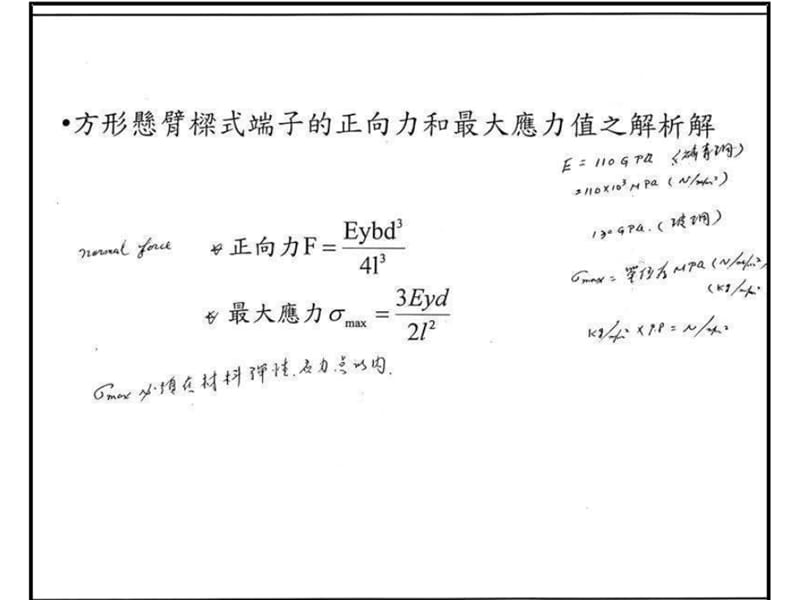 •方形懸臂樑式端子的正向力和最大應力值之解析解
E = 110 GPa (磷青銅)
=110×10³ MPa (N/mm²)
130 GPa. (鈹銅)
normal force 正向力F = Eybd³ / 4l³
σmax = 單位為 MPa (N/mm²,
(Kg/mm²
最大應力σmax = 3Eyd / 2l²
Kg/mm² × 9.8 = N/mm²
σmax 必須在材料彈性 力点以內.